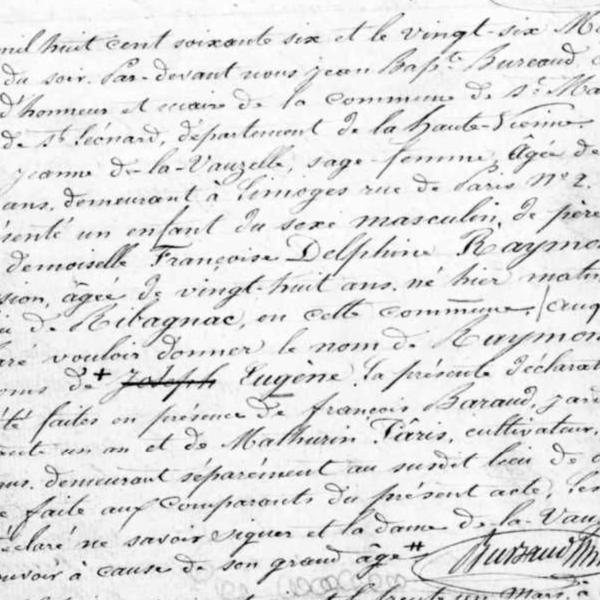 mil huit cent soixante six et le vingt-six M
du soir. Par-devant nous Jean Bapte Bureaud,
d'honneur et maire de la commune de St Ma
de St Léonard, département de la haute-Vienne.
Jeanne de-la-Vauzelle, sage-femme, âgée de
ans. demeurant à Limoges rue de Paris No 2.
senté un enfant du sexe masculin, de père
demoiselle Françoise Delphine Raymo
sion, âgée de vingt-huit ans. né hier matin
de Ribagnac, en cette commune,
ré vouloir donner le nom de Raymon
oms de + Joseph Eugène. la présente déclarat
été faites en présence de françois Baraud, jar
rente un an et de Mathurin Pâris, cultivateur,
demeurant séparément au susdit lieu de
faite aux comparants du présent acte, les
déclaré ne savoir signer et la dame de-la-Vauz
ouvoir à cause de son grand âge #
trente un Mars, à